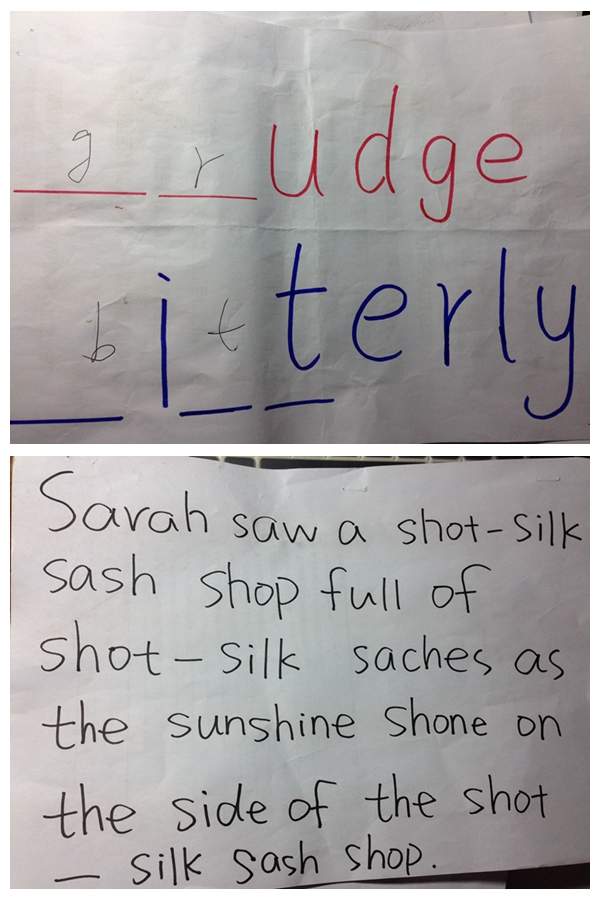 grudge
bitterly
Sarah saw a shot-silk
sash shop full of
shot-silk saches as
the sunshine shone on
the side of the shot
- silk sash shop.